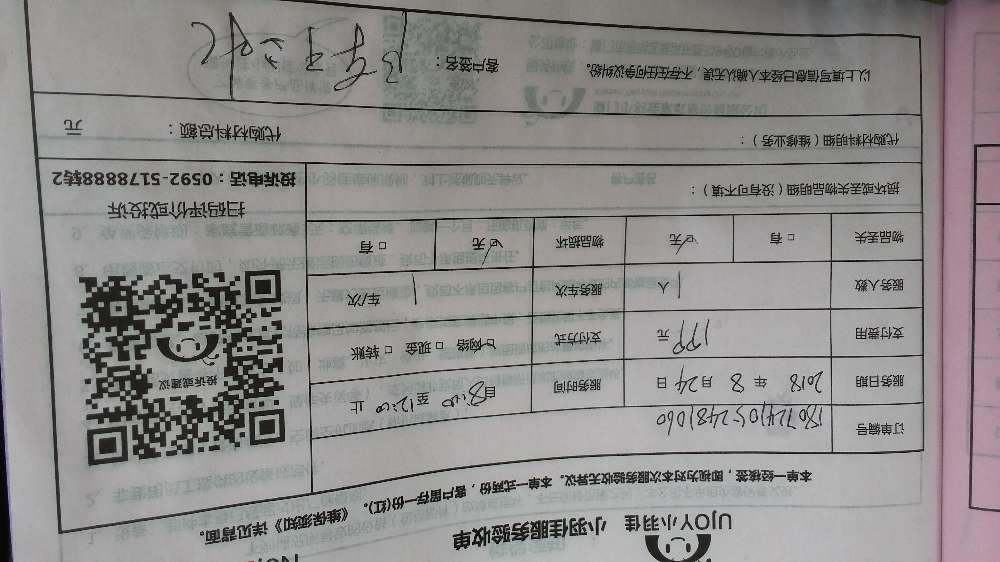 No.
UJOY小羽佳 小羽佳服务验收单
本单一经核签，即视为对本次服务验收无异议。本单一式两份，客户留存一份(红)。《维保须知》详见背面。
订单编号 1807241052481060
服务日期 2018 年 8 月 24 日 服务时间 自8:00 至12:00 止
支付费用 199 元 支付方式 网络 □ 现金 □ 转账
服务人数 1 人 服务车次 1 车/次
物品丢失 □ 有 ☑ 无 物品损坏 ☑ 无 □ 有
投诉或建议
扫码评价或投诉
投诉电话：0592-5178888转2
损坏或丢失物品明细（没有可不填）：
代购材料明细（维修业务）：
代购材料总额： 元
以上填写信息已经本人确认无误，不存在任何争议纠纷。 客户签名：